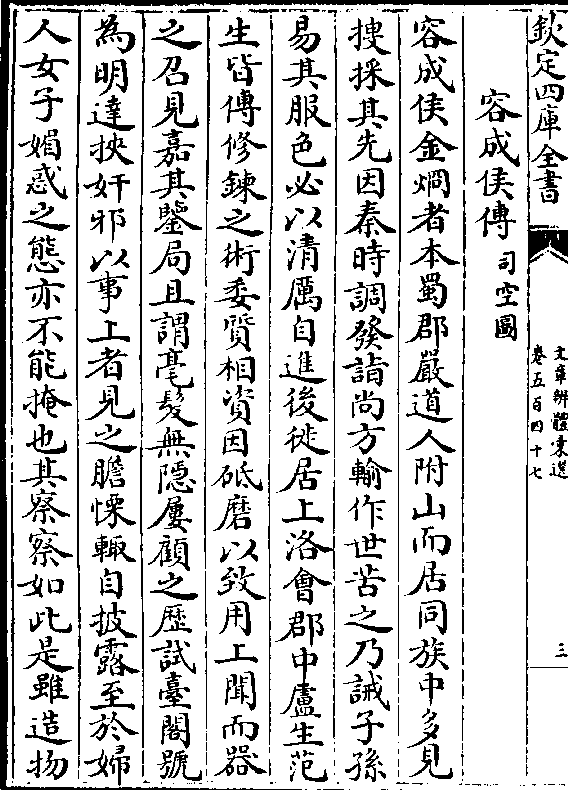 欽定四庫全書
文章辨體彙選
卷五百四十七
三
容成侯傳
司空圖
容成侯金炯者本蜀郡嚴道人附山而居同族中多見
搜採其先因秦時調發詣尚方輸作世苦之乃誡子孫
易其服色必以清厲自進後徙居上洛會郡中盧生范
生皆傳修鍊之術委質相資因砥磨以致用上聞而器
之召見嘉其鑒局且謂毫髮無隱屢顧之歷試臺閣號
為明達挾奸邪以事上者見之膽慄輒自披露至於婦
人女子媚惑之態亦不能掩也其察察如此是雖造物